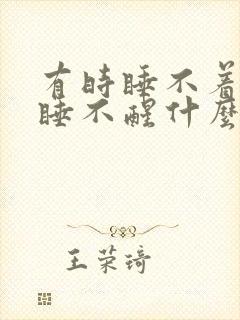 有时睡不着
睡不醒什麽
王荣琦